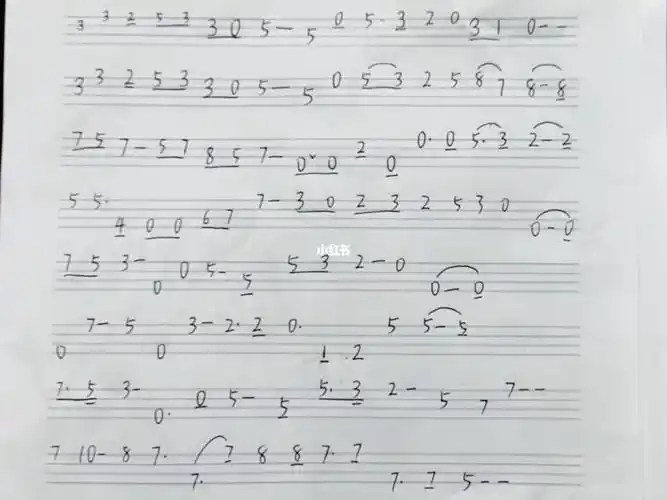 3 3 2 5 3 3 0 5 - 5 0 5. 3 2 0 3 1 0 - -
3 3 2 5 3 3 0 5 - 5 0 5 3 2 5 8 7 8 - 8
7 5 7 - 5 7 8 5 7 - 0 0 2 0 0. 0 5. 3 2 - 2
5 5. 4 0 0 6 7 7 - 3 0 2 3 2 5 3 0 0 - 0
小红书
7 5 3 - 0 0 5 - 5 5 3 2 - 0 0 - 0
0 7 - 5 0 3 - 2. 2 0. 1 .2 5 5 - 5
7. 5 3 - 0. 0 5 - 5 5. 3 2 - 5 7 7 - -
7 10 - 8 7. 7. 7 8 8 7. 7 7. 7 5 - -